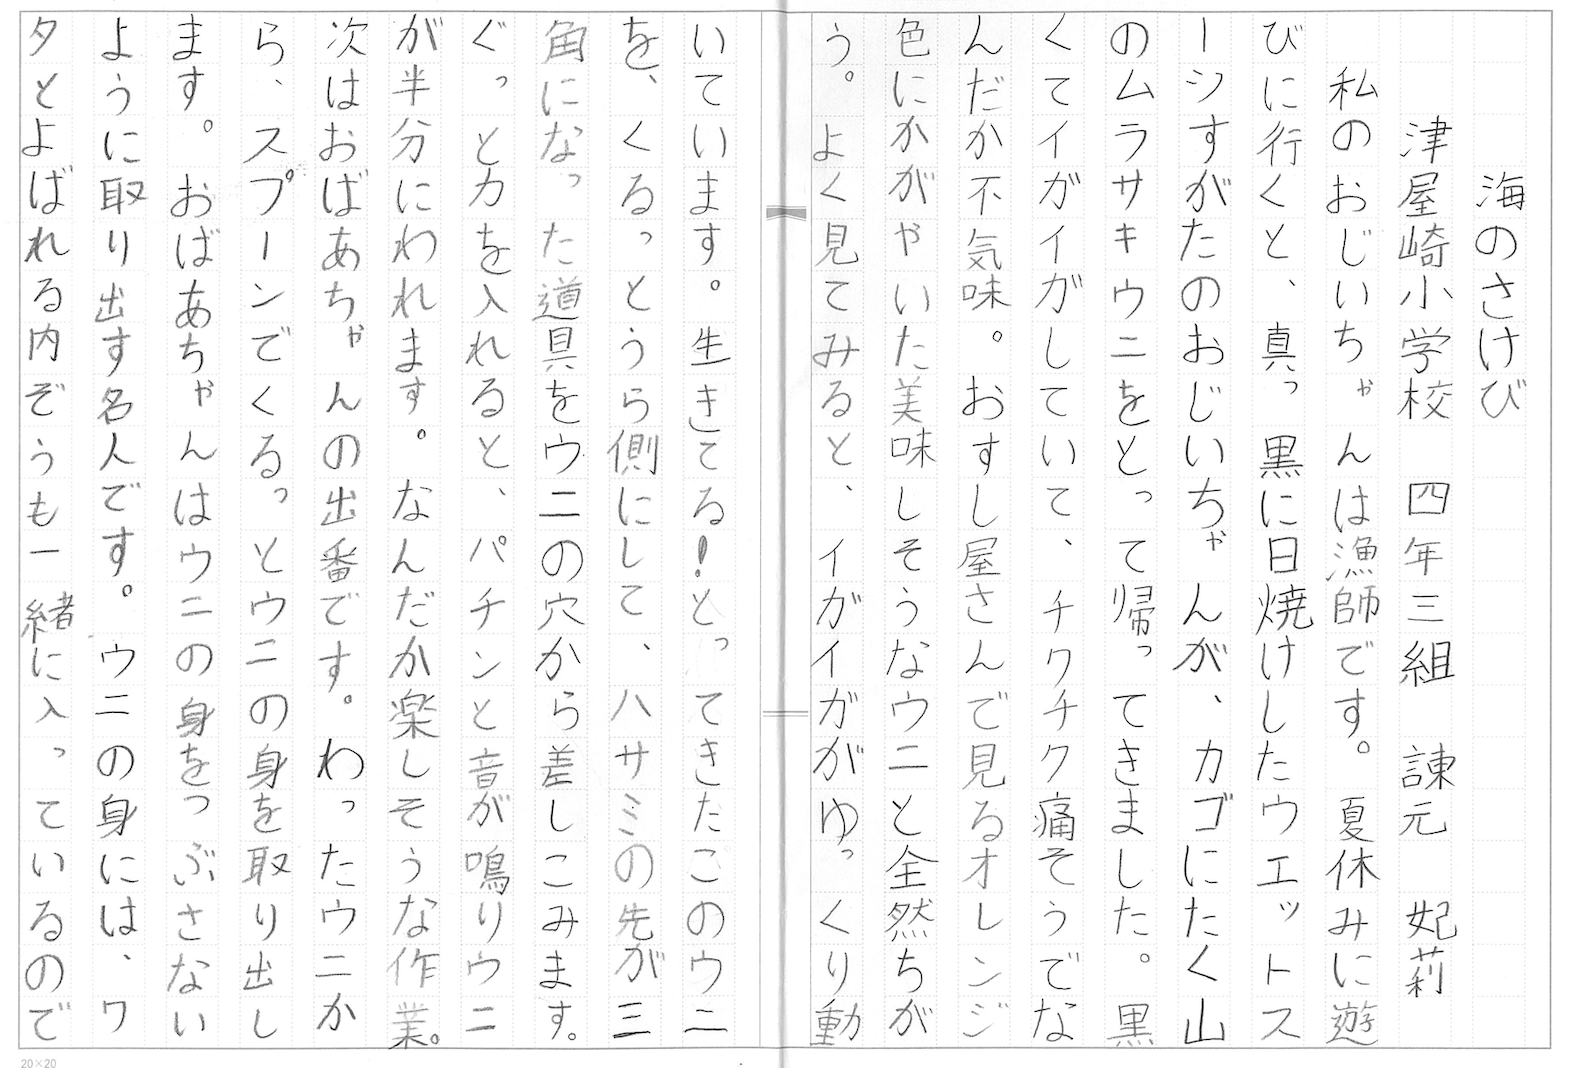 海のさけび
津屋崎小学校　四年三組　諌元　妃莉
　私のおじいちゃんは漁師です。夏休みに遊
びに行くと、真っ黒に日焼けしたウエットス
ーツすがたのおじいちゃんが、カゴにたく山
のムラサキウニをとって帰ってきました。黒
くてイガイガしていて、チクチク痛そうでな
んだか不気味。おすし屋さんで見るオレンジ
色にかがやいた美味しそうなウニと全然ちが
う。よく見てみると、イガイガがゆっくり動
いています。生きてる！とってきたこのウニ
を、くるっとうら側にして、ハサミの先が三
角になった道具をウニの穴から差しこみます。
ぐっと力を入れると、パチンと音が鳴りウニ
が半分にわれます。なんだか楽しそうな作業。
次はおばあちゃんの出番です。わったウニか
ら、スプーンでくるっとウニの身を取り出し
ます。おばあちゃんはウニの身をつぶさない
ように取り出す名人です。ウニの身には、ワ
タとよばれる内ぞうも一緒に入っているので
20×20